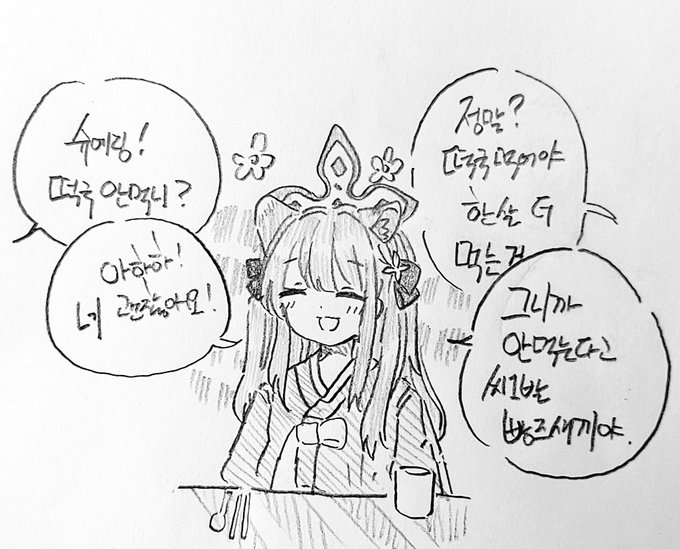 슈에링!
떡국 안먹니?
아하하!
네 괜찮아요!
정말?
떡국 먹어야
한살 더
먹는건
그니까
안먹는다고
씨그발
빵즈새끼야.